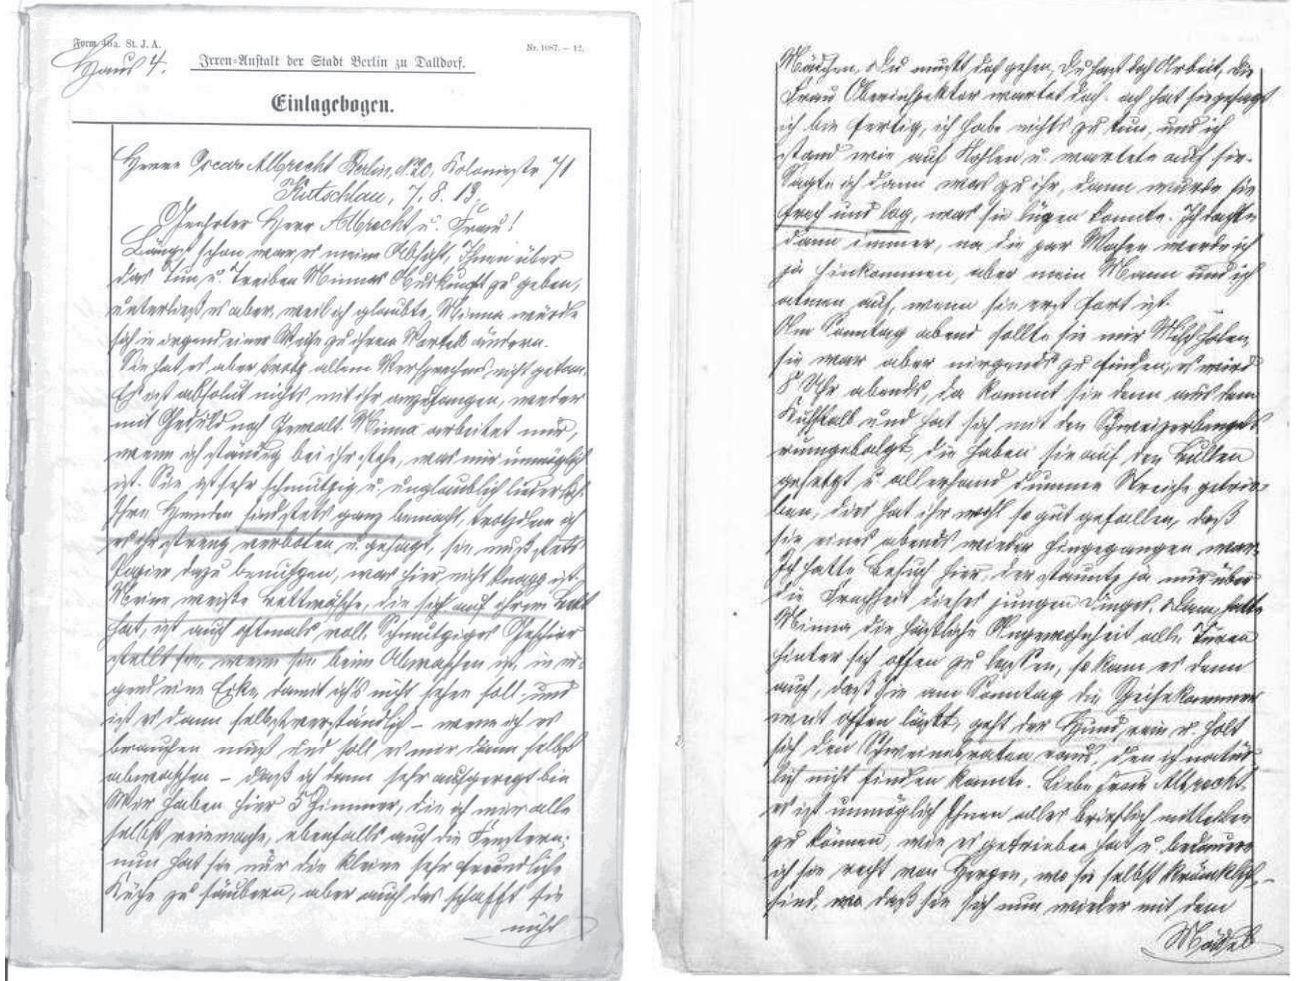 Form. 46a. St. J. A.
Nr. 1087. – 12.
Haus 4.
Irren-Anstalt der Stadt Berlin zu Dalldorf.
Einlagebogen.
Herrn Oscar Albrecht Berlin, N. 20, Koloniestr 71
Kutschlau, 7. 8. 13.
Geehrter Herr Albrecht u. Frau!
Längst schon war es meine Absicht, Ihnen über
das Tun u. Treiben Minnas Auskunft zu geben,
unterließ es aber, weil ich glaubte, Minna würde
sich in irgend einer Weise zu ihrem Vorteil ändern.
Sie hat es aber trotz allem Versprechens nicht getan.
Es ist absolut nichts mit ihr anzufangen, weder
mit Geduld noch Gewalt. Minna arbeitet nur,
wenn ich ständig bei ihr stehe, was mir unmöglich
ist. Sie ist sehr schmutzig u. unglaublich liederlich.
Ihre Hemden sind stets ganz bemacht, trotzdem ich
es ihr streng verboten u. gesagt, sie muß stets
Papier dazu benutzen, was hier nicht knapp ist.
Meine weiße Bettwäsche, die sich auf ihrem Bett
hat, ist auch oftmals voll. Schmutziges Geschirr
stellt sie, wenn sie beim Abwaschen ist, in ir-
gend eine Ecke, damit ich's nicht sehen soll und
ist es dann selbstverständlich – wenn ich es
brauchen muß und soll es mir dann selbst
abwaschen – daß ich dann sehr aufgeregt bin
Wir haben hier 5 Zimmer, die ich mir alle
selbst reinmache, ebenfalls auch die Fenstern;
nun hat sie nur die kleine sehr freundliche
Küche zu säubern, aber auch das schafft sie
nicht
Mädchen, du mußt doch gehen, du hast doch Arbeit, die
Frau Oberinspektor wartet doch. ach hat sie gesagt
ich bin fertig, ich habe nichts zu tun, und ich
stand wie auf Kohlen u. wartete auf sie.
Sagte ich dann was zu ihr, dann wurde sie
frech und log, was sie lügen konnte. Ich dachte
dann immer, na die paar Wochen werde ich
ja hinkommen, aber mein Mann und ich
atmen auf, wenn sie erst fort ist.
Am Sonntag abend sollte sie mir Milch holen,
sie war aber nirgends zu finden, es wird
8 Uhr abends, da kommt sie denn aus dem
Kuhstall und hat sich mit den Schweizerbengels
rumgebalgt, die haben sie auf den Bullen
gesetzt u. allerhand dumme Streiche getrie-
ben, dies hat ihr wohl so gut gefallen, daß
sie eines abends wieder hingegangen war.
Ich hatte Besuch hier, der staunte ja nur über
die Frechheit dieses jungen Dinges. Dann hatte
Minna die häßliche Angewohnheit alle Türen
hinter sich offen zu lassen, so kam es denn
auch, daß sie am Sonntag die Speisekammer
weit offen läßt, geht der Hund rein u. holt
sich den Schweinebraten raus, den ich natür-
lich nicht finden konnte. Liebe Frau Albrecht.
es ist unmöglich Ihnen alles brieflich mitteilen
zu können, wie es getrieben hat u. bedaure
ich sie recht von Herzen, wo sie selbst kränklich
sind, daß sie sich nun wieder mit dem
Mädchel